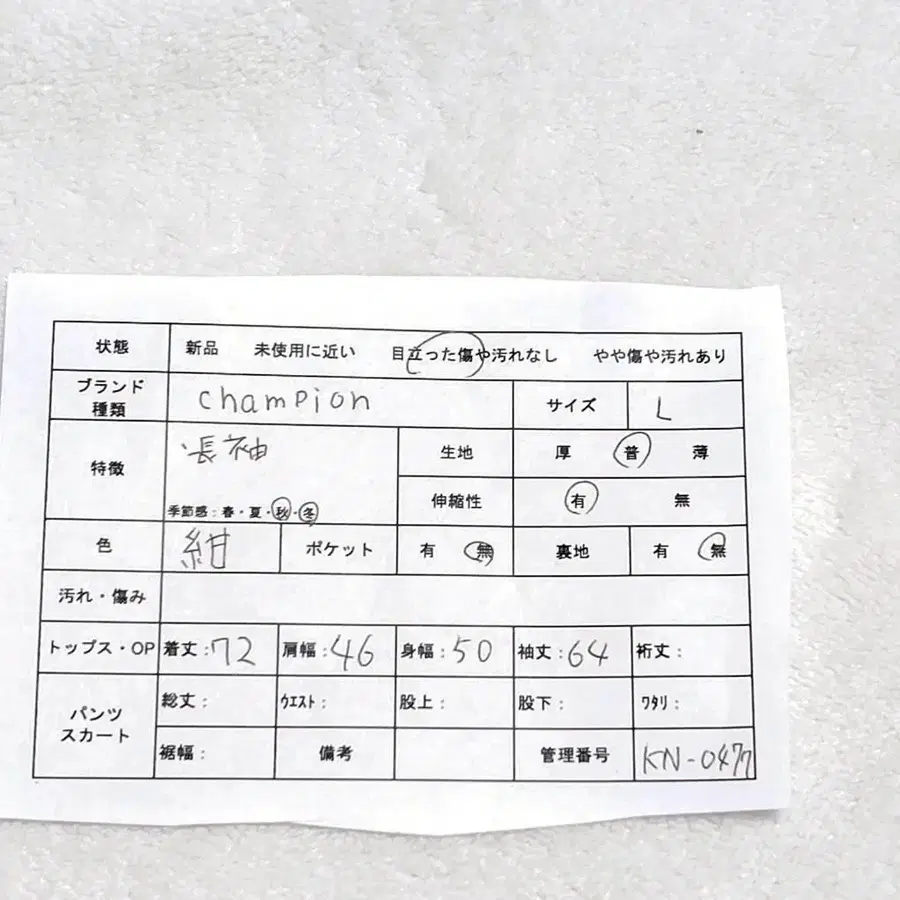 状態 新品 未使用に近い 目立った傷や汚れなし やや傷や汚れあり
ブランド
種類 champion サイズ L
特徴 長袖 生地 厚 普 薄
季節感：春・夏・秋・冬 伸縮性 有 無
色 紺 ポケット 有 無 裏地 有 無
汚れ・傷み
トップス・OP 着丈：72 肩幅：46 身幅：50 袖丈：64 裄丈：
パンツ
スカート 総丈： ｳｴｽﾄ： 股上： 股下： ﾜﾀﾘ：
裾幅： 備考 管理番号 KN-0477